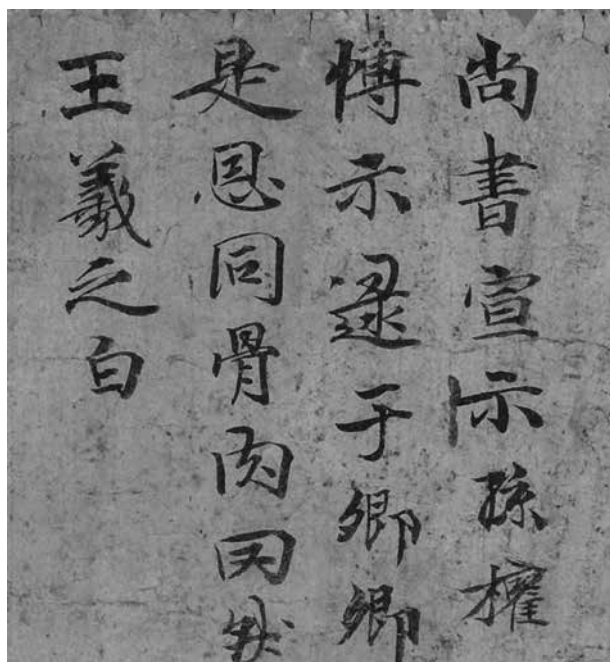 尚書宣示孫權
愽示逯于卿卿
是恩同骨肉
王羲之白